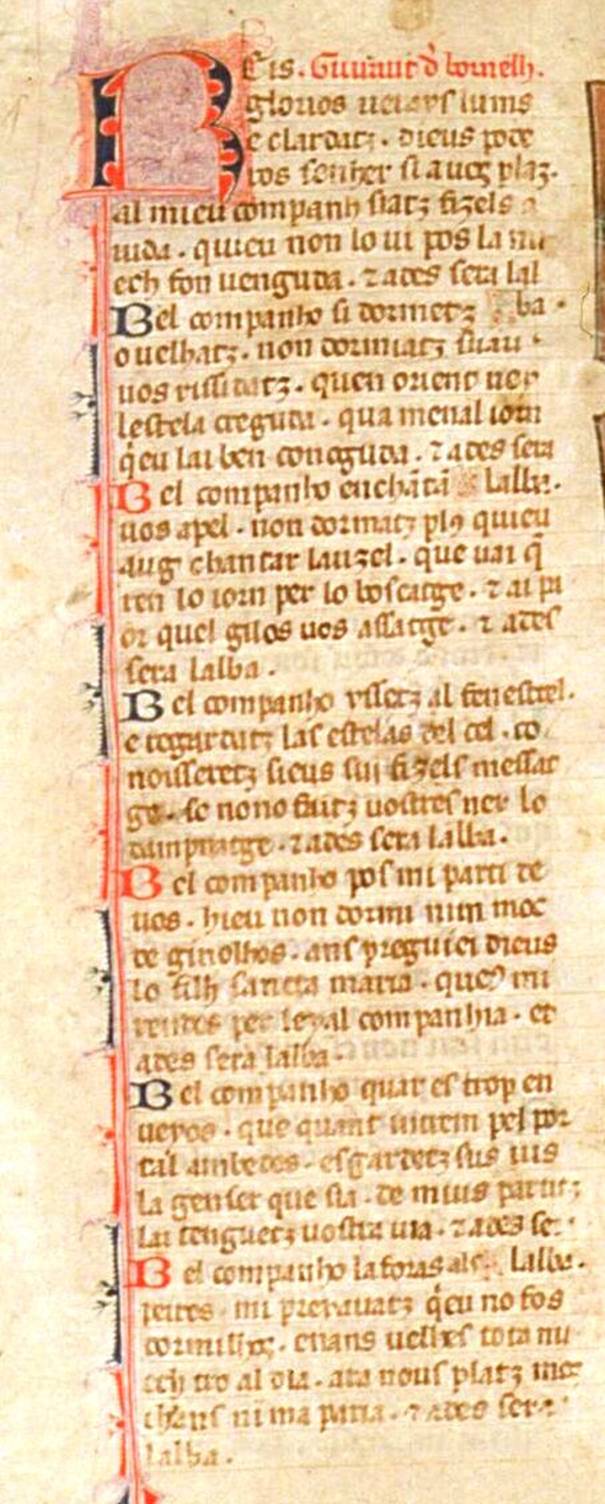 Reis . Giraut d bornelh .
glorios uerays lums
e clardatz . dieus pode
ros senher si auos plaz .
al mieu companh siatz fizels a
iuda . quieu non lo ui pos la nu
ech fon uenguda . 7 ades sera lal
Bel companho si dormetz ba .
o uelhatz . non dormatz suau
uos rissidatz . quen orient uey
lestela creguda . qua menal iorn
q̃eu lai ben conoguda . 7 ades sera
Bel companho en chãtã lalba .
uos apel . non dormatz pl9 quieu
aug chantar lauzel . que uai q̃
ren lo iorn per lo boscatge . 7 ai pa
or quel gilos uos assatge . 7 ades
sera lalba .
Bel companho yssetz al fenestrel .
e regardatz las estelas del cel . co
noisseretz sieus sui fizels messat
ge . se nono faitz uostres ner lo
dampnatge . 7 ades sera lalba .
Bel companho pos mi parti de
uos . hieu non dormi nim moc
de ginolhos . ans preguiei dieus
lo filh sancta maria . que9 mi
rendes per leyal companhia . et
ades sera lalba .
Bel companho quar es trop en
ueyos . que quant intrem pel por
tal ambedos . esgardetz sus uis
la genser que sia . de mius partitz
lai tenguetz uostra uia . 7 ades se
Bel companho la foras als lalba .
peiros mi preiauatz q̃eu no fos
dormilhos . enans uelhes tota nu
ech tro al dia . ara nous platz mos
chans ni ma paria . 7 ades sera
lalba .